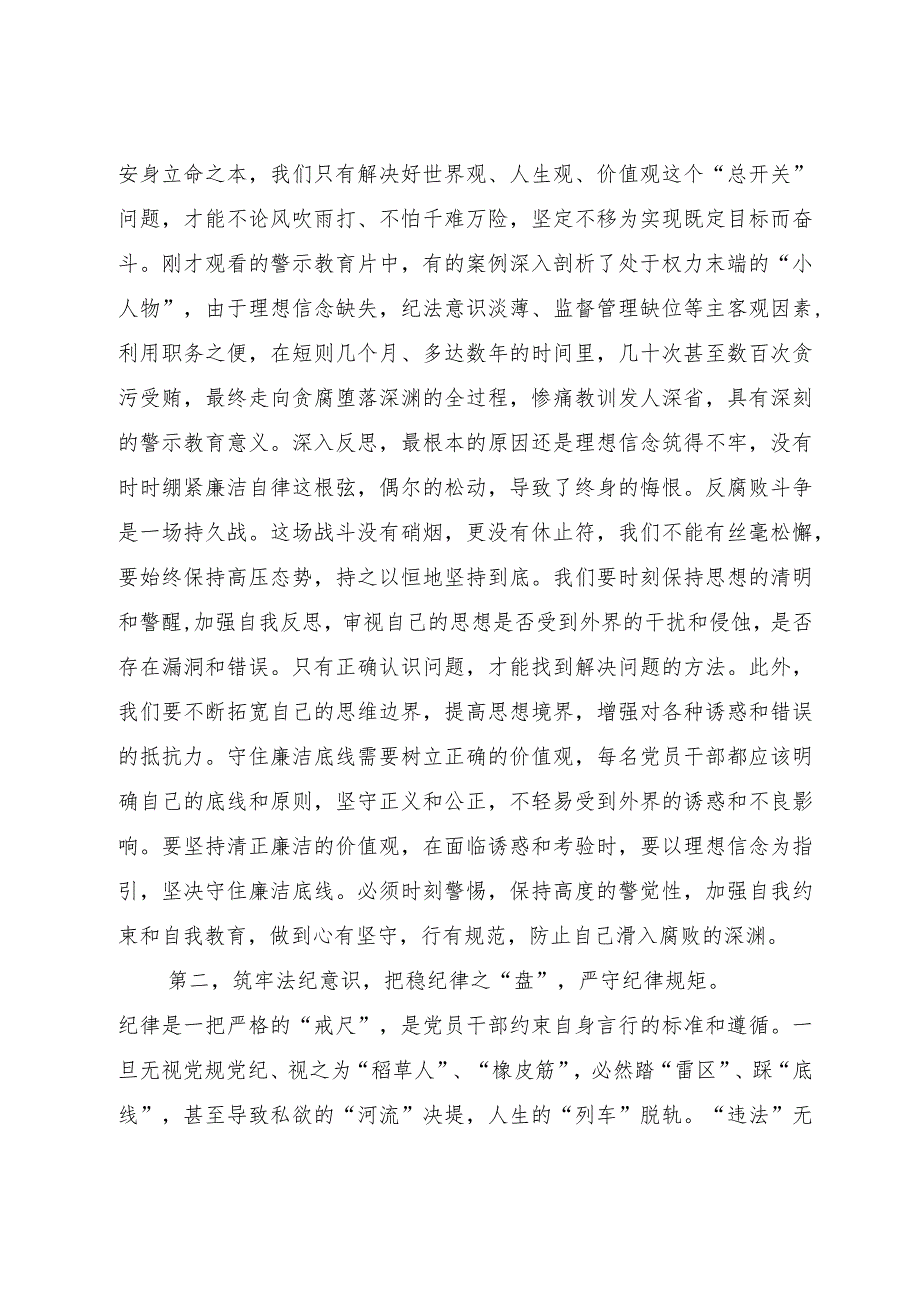 安身立命之本，我们只有解决好世界观、人生观、价值观这个“总开关”
问题，才能不论风吹雨打、不怕千难万险，坚定不移为实现既定目标而奋
斗。刚才观看的警示教育片中，有的案例深入剖析了处于权力末端的“小
人物”，由于理想信念缺失，纪法意识淡薄、监督管理缺位等主客观因素，
利用职务之便，在短则几个月、多达数年的时间里，几十次甚至数百次贪
污受贿，最终走向贪腐堕落深渊的全过程，惨痛教训发人深省，具有深刻
的警示教育意义。深入反思，最根本的原因还是理想信念筑得不牢，没有
时时绷紧廉洁自律这根弦，偶尔的松动，导致了终身的悔恨。反腐败斗争
是一场持久战。这场战斗没有硝烟，更没有休止符，我们不能有丝毫松懈，
要始终保持高压态势，持之以恒地坚持到底。我们要时刻保持思想的清明
和警醒,加强自我反思，审视自己的思想是否受到外界的干扰和侵蚀，是否
存在漏洞和错误。只有正确认识问题，才能找到解决问题的方法。此外，
我们要不断拓宽自己的思维边界，提高思想境界，增强对各种诱惑和错误
的抵抗力。守住廉洁底线需要树立正确的价值观，每名党员干部都应该明
确自己的底线和原则，坚守正义和公正，不轻易受到外界的诱惑和不良影
响。要坚持清正廉洁的价值观，在面临诱惑和考验时，要以理想信念为指
引，坚决守住廉洁底线。必须时刻警惕，保持高度的警觉性，加强自我约
束和自我教育，做到心有坚守，行有规范，防止自己滑入腐败的深渊。
第二，筑牢法纪意识，把稳纪律之“盘”，严守纪律规矩。
纪律是一把严格的“戒尺”，是党员干部约束自身言行的标准和遵循。一
旦无视党规党纪、视之为“稻草人”、“橡皮筋”，必然踏“雷区”、踩“底
线”，甚至导致私欲的“河流”决堤，人生的“列车”脱轨。“违法”无